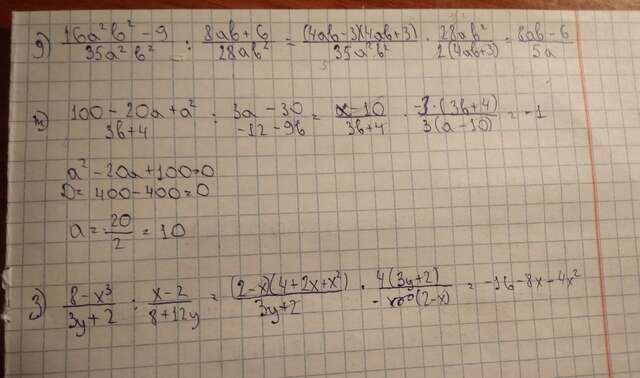 д) (16a²b² - 9)/(35a²b²) : (8ab + 6)/(28ab²) = ((4ab - 3)(4ab + 3))/(35a²b²) · (28ab²)/(2(4ab + 3)) = (8ab - 6)/(5a)
ж) (100 - 20a + a²)/(3b + 4) : (3a - 30)/(-12 - 9b) = (x - 10)/(3b + 4) · (-3 · (3b + 4))/(3(a - 10)) = -1
a² - 20a + 100 = 0
D = 400 - 400 = 0
a = 20/2 = 10
з) (8 - x³)/(3y + 2) : (x - 2)/(8 + 12y) = ((2 - x)(4 + 2x + x²))/(3y + 2) · (4(3y + 2))/(-(2 - x)) = -16 - 8x - 4x²